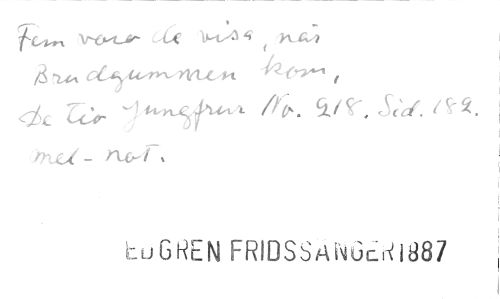 Fem voro de visa, när
Brudgummen kom,
De Tio Jungfrur No. 218. Sid. 182.
mel-not.
EDGREN FRIDSSÅNGER 1887